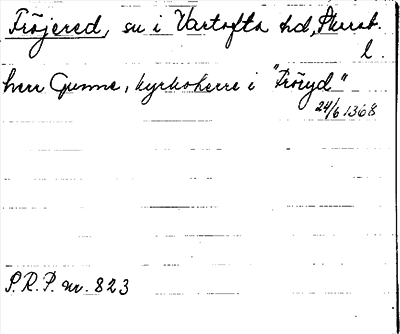 Fröjered, sn i Vartofta hd, Skarab.
l.
herr Gunne, kyrkoherre i "Fröryd"
24/6 1368
P.R.P. nr. 823